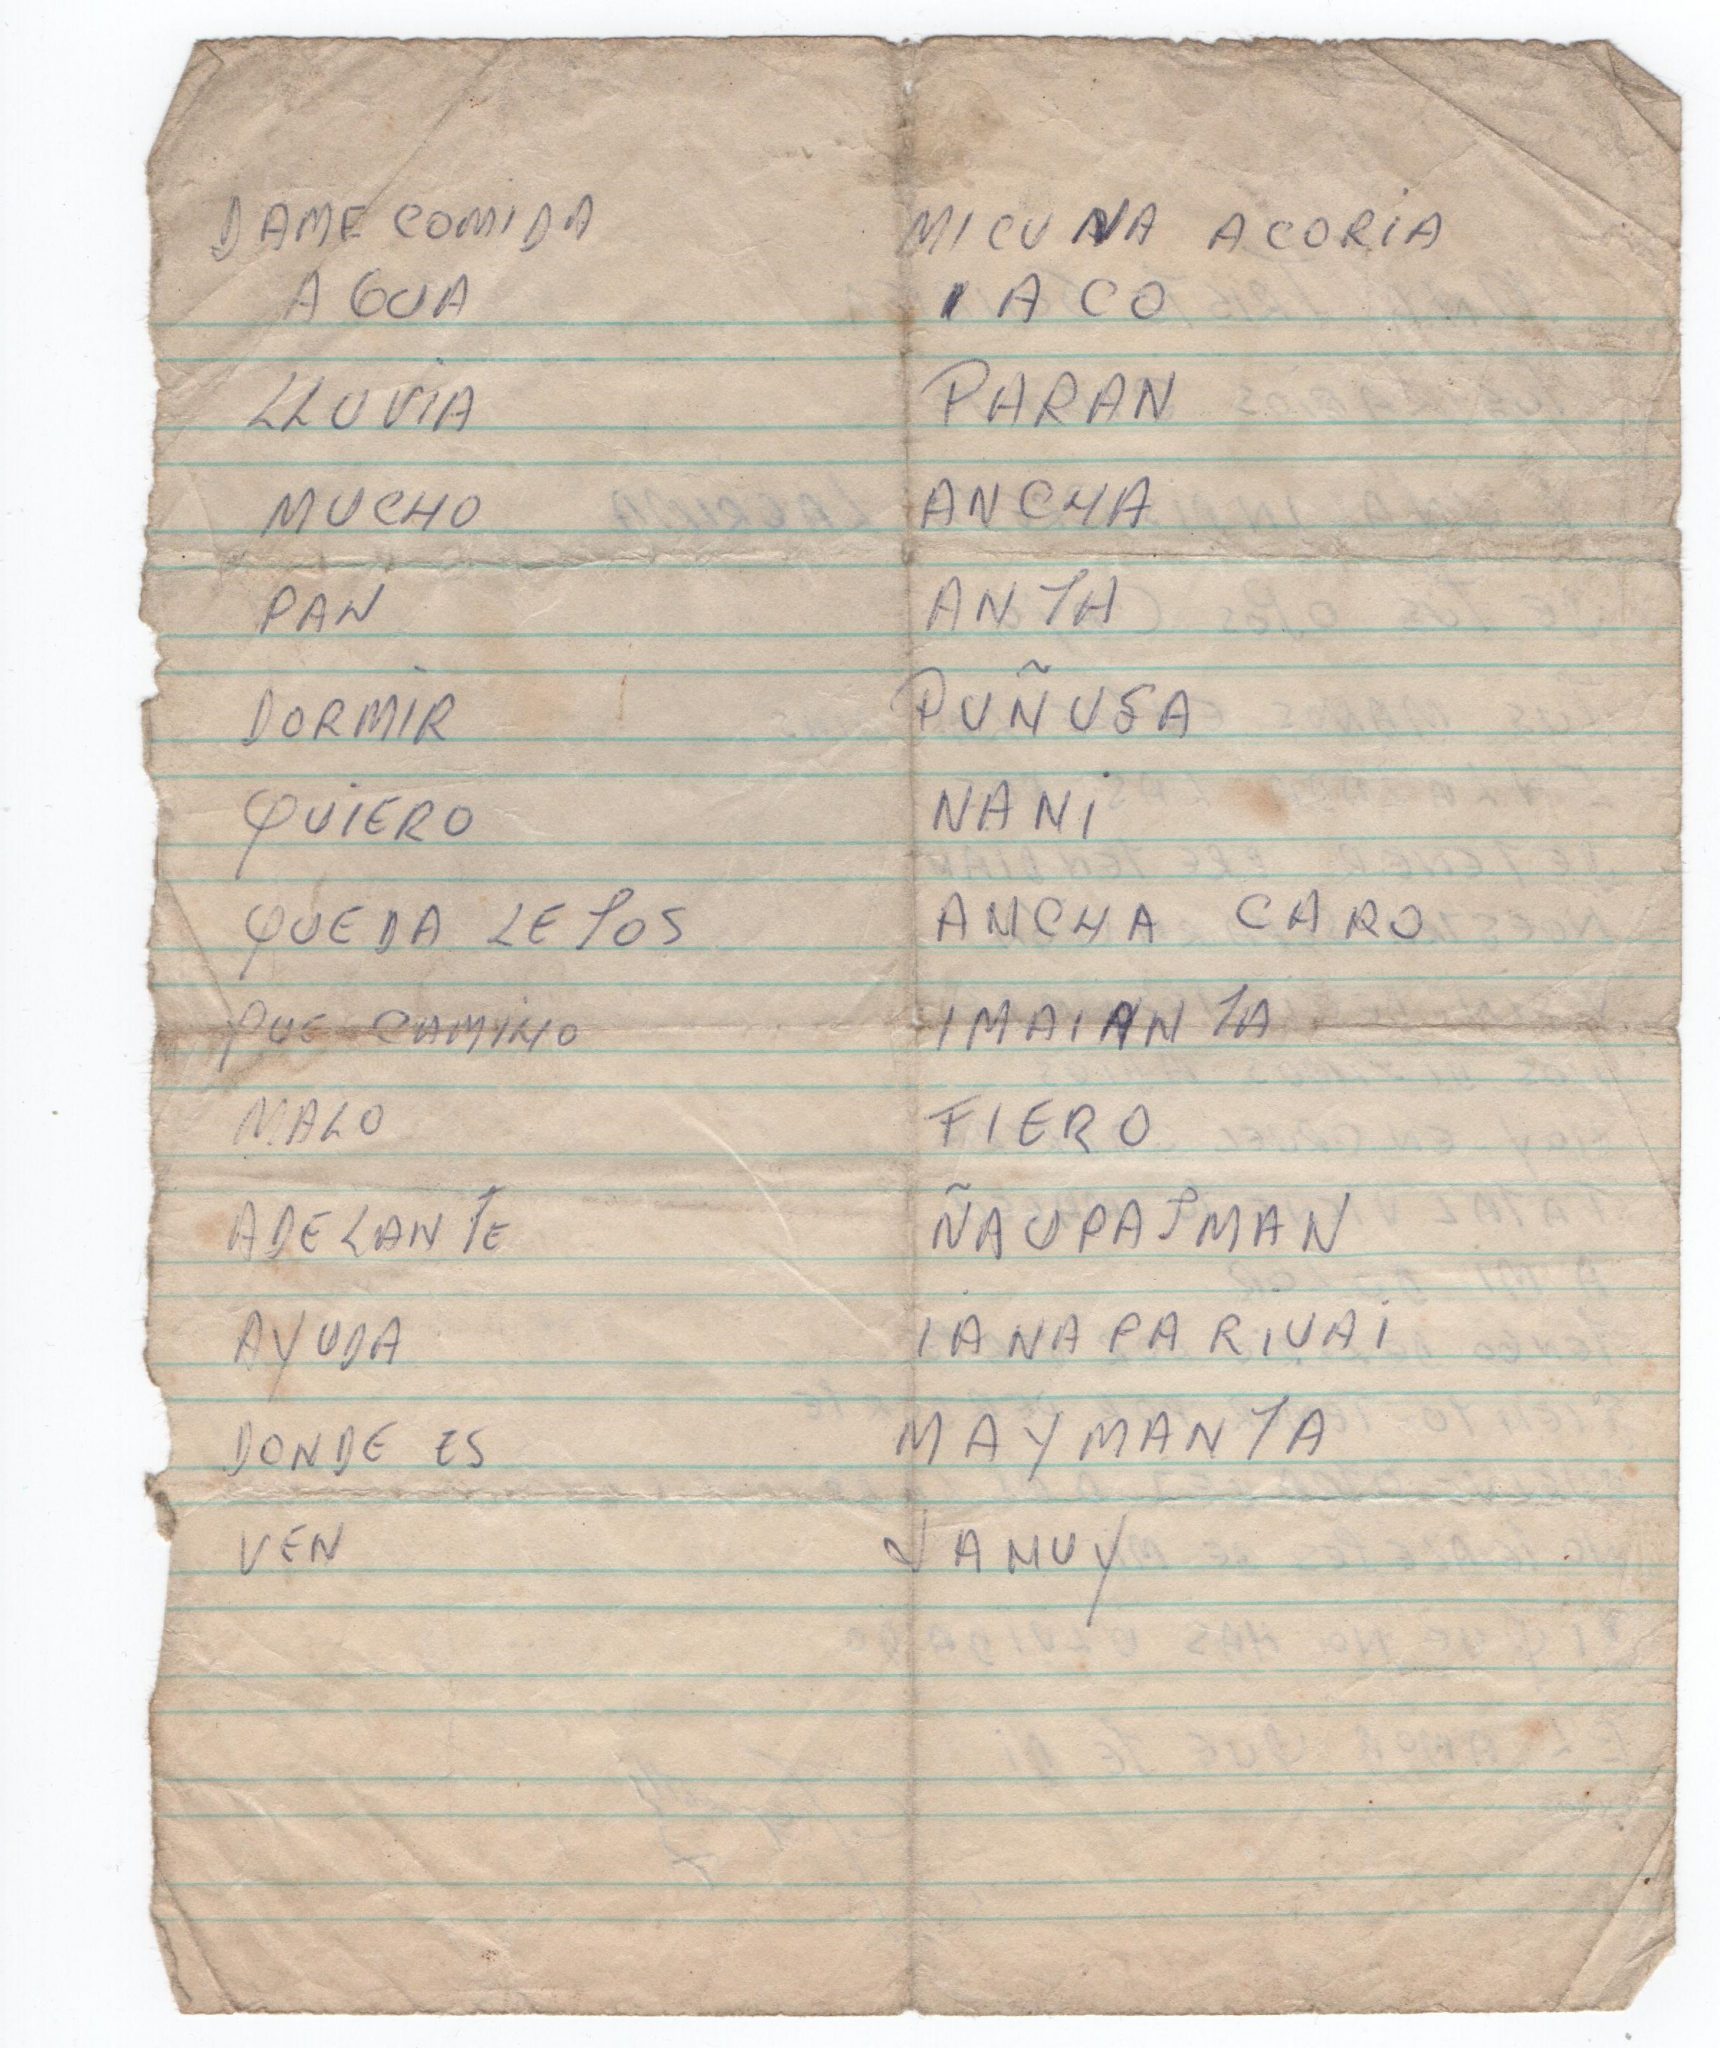 DAME COMIDA MICUNA ACORIA
AGUA IACO
LLUVIA PARAN
MUCHO ANCHA
PAN ANTA
DORMIR PUÑUSA
QUIERO NANI
QUEDA LEJOS ANCHA CARO
QUE CAMINO IMAIANTA
MALO FIERO
ADELANTE ÑAUPAJMAN
AYUDA IANAPARIUAI
DONDE ES MAYMANTA
VEN JAMUY